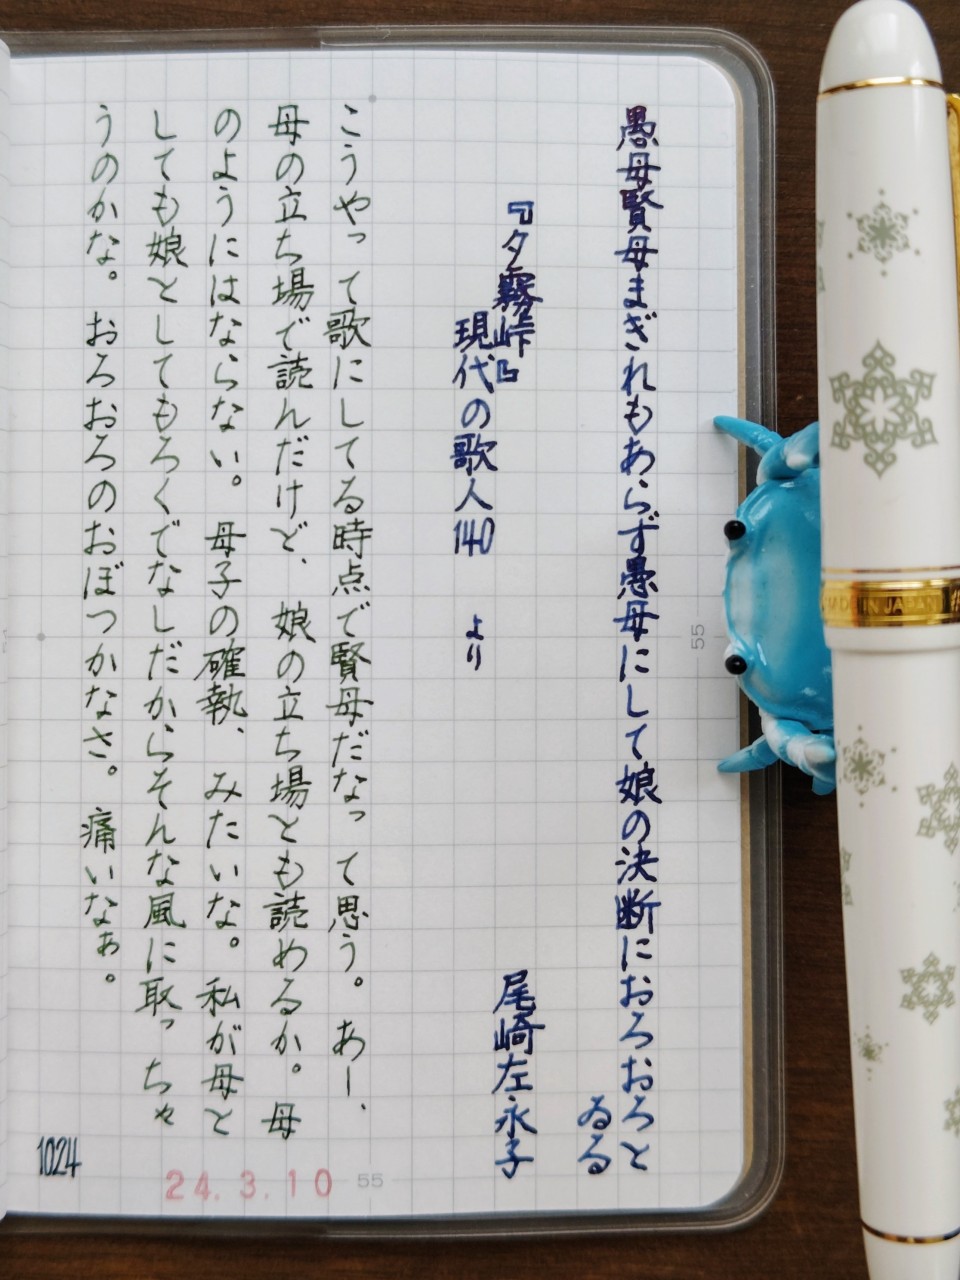 愚母賢母まぎれもあらず愚母にして娘の決断におろおろと
ゐる
『夕霧峠』
現代の歌人140 より
尾崎左永子
こうやって歌にしてる時点で賢母だなって思う。あー、
母の立ち場で読んだけど、娘の立ち場とも読めるか。母
のようにはならない。母子の確執、みたいな。私が母と
しても娘としてもろくでなしだからそんな風に取っちゃ
うのかな。おろおろのおぼつかなさ。痛いなぁ。
1024
24.3.10
55
55
MADE IN JAPAN